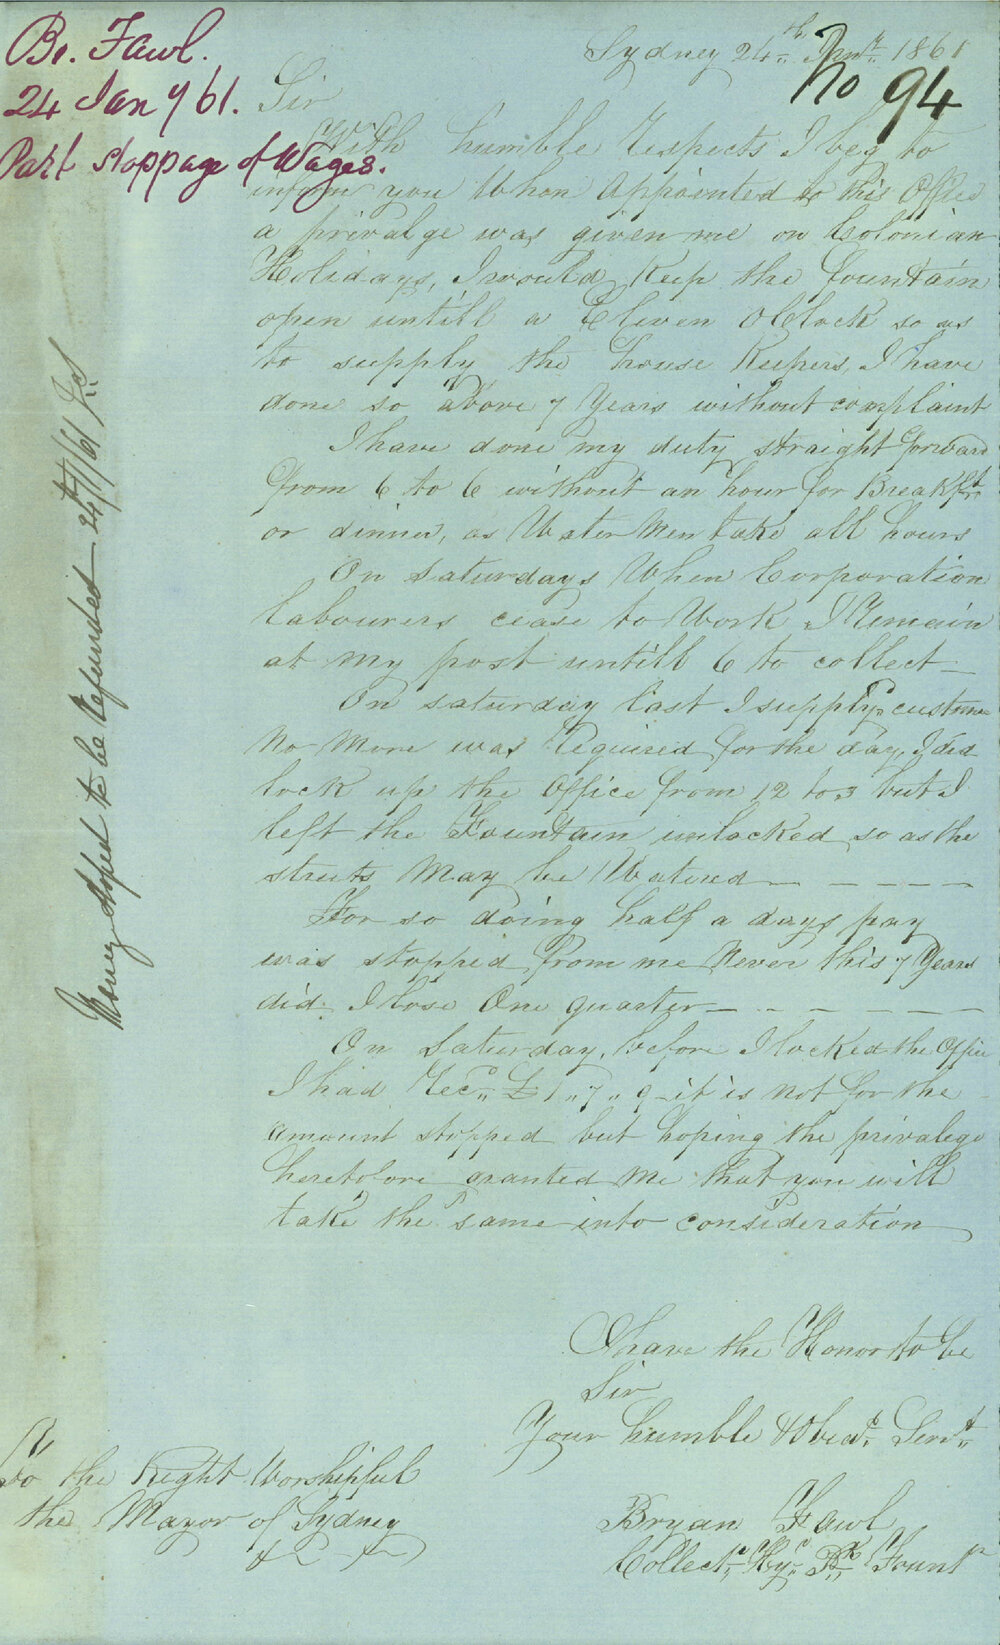 Br. Fawl.
24 Jan y 61.
Part stoppage of Wages.
No 94
Sydney 24th Jany 1861
Sir
With humble Respects I beg to
inform you When Appointed to this Office
a privalge was given me on Colonian
Holidays, I would Keep the fountain
open untill a Eleven OClock so as
to supply the house Keepers, I have
done so above 7 Years without complaint
I have done my duty straight forward
from 6 to 6 without an hour for Breakfst
or dinner, as Water Men take all hours
On Saturdays When Corporation
labourers cease to Work I Remain
at my post untill 6 to collect
On Saturday last I supplyd custmrs
No More was Required for the day, I did
lock up the Office from 12 to 3 but I
left the Fountain unlocked so as the
streets May be Watered
For so doing half a days pay
was stopped from me Never this 7 Years
did I lose One quarter
On Saturday, before I locked the Office
I had Recd £1,, 7,, 9 - it is not for the
amount stopped but hoping the privalege
heretofore granted me that you will
take the same into consideration
I have the Honor to be
Sir
Your humble & Obedt Servt
Bryan Fawl
Collectr Hy Pk Fount
To the Right Worshipful
the Mayor of Sydney
Money stopped to be Refunded - 24/1/61